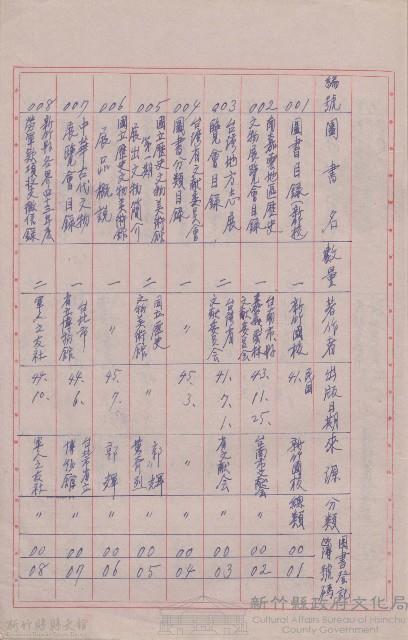 編號 圖書名 數量 著作者 出版日期 來源 分類 圖書登記簿號碼
001 圖書目錄(新竹 一 新竹國校 民國41. 新竹國校 總類 00 01
002 南嘉雲地區歷史文物展覽會目錄 一 台南市縣嘉義雲林文獻委員會 43.11.25. 台南市文獻會 〃 00 02
003 台灣地方志展覽會目錄 二 台灣省文獻委員會 41.7.1. 省文獻會 〃 00 03
004 台灣省文獻委員會圖書分類目錄 一 〃 45.3. 〃 〃 00 04
005 國立歷史文物美術館第一期展出文物簡介 二 國立歷史文物美術館 〃 郭輝 黃 〃 00 05
006 國立歷史文物美術館展品概說 一 〃 45.7. 郭輝 〃 00 06
007 中華古代文物展覽會目錄 一 台北市省立博物館 44.6. 台北市省立博物館 〃 00 07
008 新竹縣各界四十三年度勞軍款項 徵信錄 二 軍人之友社 44.10. 軍人之友社 〃 00 08
新竹縣縣史館
新竹縣政府文化局
Cultural Affairs Bureau of Hsinchu County Government